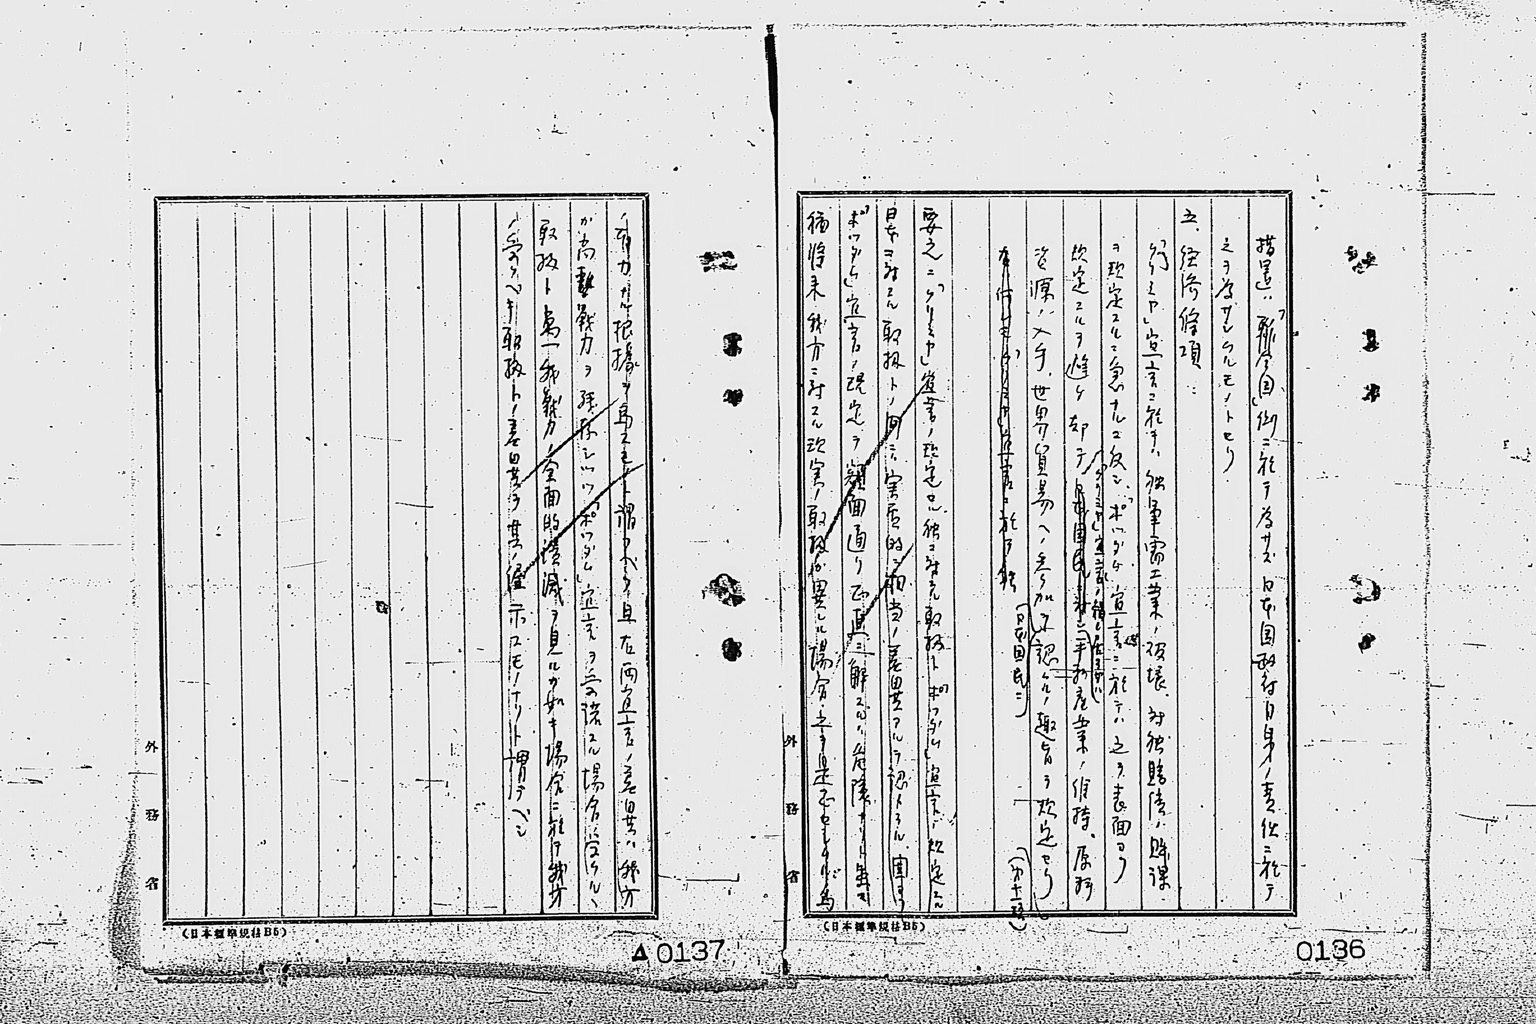 措置ハ「聯合国」側ニ於テ為サス日本国政府自身ノ責任ニ於テ
之ヲ為サシムルモノトセリ
五、経済條項
「クリミヤ」宣言ニ於テハ独軍需工業ノ破壊、対独賠償ノ賦課
ヲ規定スルニ急ナルニ反シ「ポツダム」宣言ニ於テハ之ヲ表面ヨリ
規定スルヲ避ケ却テ平和産業ノ維持、原料
資源ノ入手、世界貿易ヘノ参加ヲ認ムル趣旨ヲ規定セリ
(日本国民ニ
(第十一項)
要之ニ「クリミヤ」宣言ノ規定セル独ニ対スル取扱ト「ポツダム」宣言ノ規定スル
日本ニ対スル取扱トノ間ニ実質的ニ相当ノ差異アルヲ認メラル
「ポツダム」宣言ノ規定ヲ額面通リ正直ニ解スルハ危険ナリト雖モ
将来我方ニ対スル現実ノ取扱カ異レル場合之ヲ是正セシムル為
ノ有力ナル根據ヲ為スモノト謂フベク且右両宣言ノ差異ハ我方
カ尚戦力ヲ残存シツツ「ポツダム」宣言ヲ受諾スル場合受クル
取扱ト万一我戦力ノ全面的潰滅ヲ見ルカ如キ場合ニ於テ我方
ノ受クベキ取扱トノ差異ヲ其ノ儘示スモノナリト謂フベシ
外務省
外務省
(日本標準規格B5)
(日本標準規格B5)
0136
0137